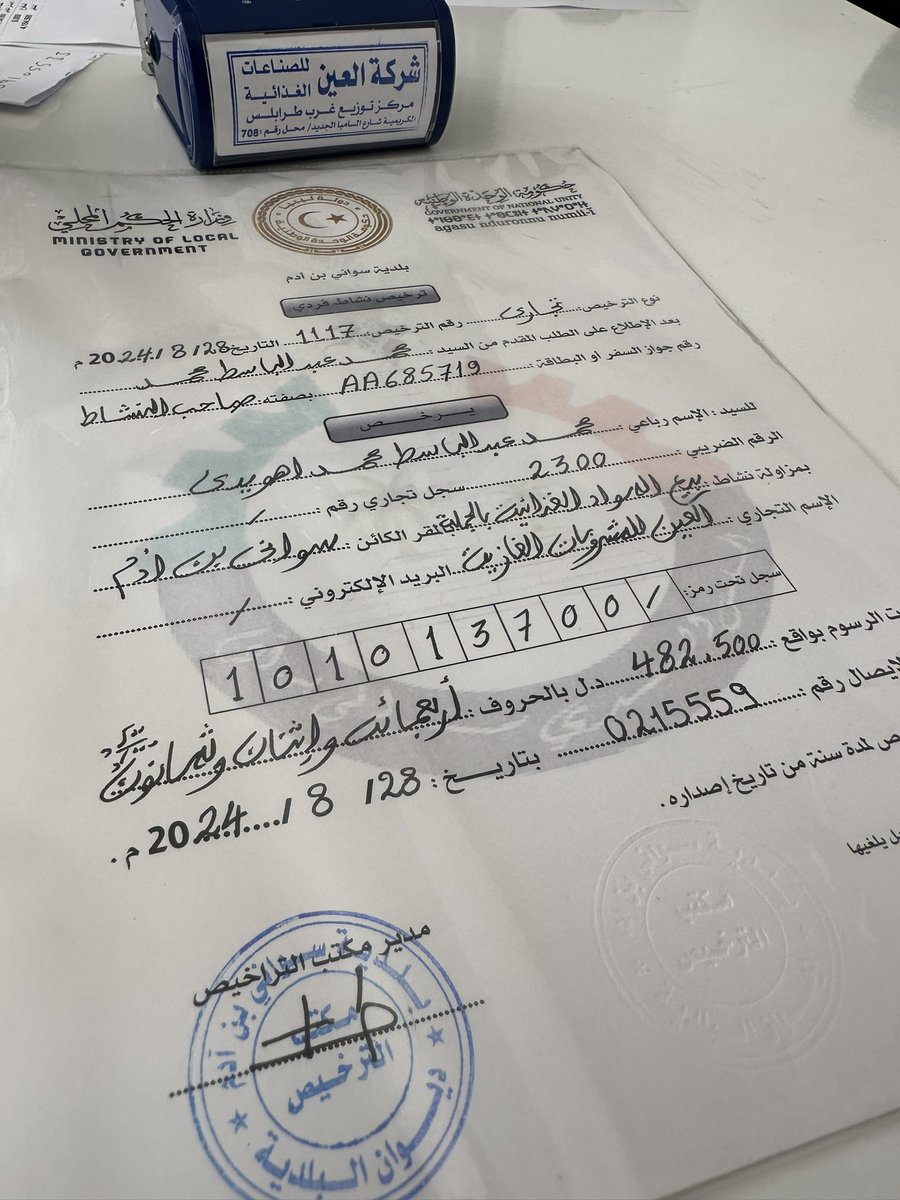 شركة العين للصناعات الغذائية
مركز توزيع غرب طرابلس
الكريمية شارع السامبا الجديد/ محل رقم :708
وزارة الحكم المحلي
MINISTRY OF LOCAL GOVERNMENT
دولة ليبيا
حكومة الوحدة الوطنية
حكومة الوحدة الوطنية
GOVERNMENT OF NATIONAL UNITY
agasu nduronmu numli-i
بلدية سواني بن آدم
ترخيص نشاط فردي
نوع الترخيص: تجاري رقم الترخيص: 1117 التاريخ 28/ 8 /2024 م
بعد الإطلاع على الطلب المقدم من السيد: محمد عبد الباسط محمد
رقم جواز السفر أو البطاقة AA685719 بصفته صاحب النشاط
يرخص
للسيد: الإسم رباعي: محمد عبد الباسط محمد اهويدي
الرقم الضريبي 2300 سجل تجاري رقم: /
بمزاولة نشاط: بيع المواد الغذائية بالجملة لمقر الكائن: سواني بن آدم
الإسم التجاري: العين للمشروبات الغازية البريد الإلكتروني: /
سجل تحت رمز: 1 0 1 0 1 3 7 0 0 /
ت الرسوم بواقع: 482.500 د.ل بالحروف: أربعمائة واثنان وثمانون
لإيصال رقم: 0215559 بتاريخ: 28/ 8 /2024 م.
ص لمدة سنة من تاريخ إصداره.
ل يلغيها
مدير مكتب التراخيص
بلدية سواني بن آدم
مكتب
الترخيص
ديوان البلدية
مكتب
الترخيص